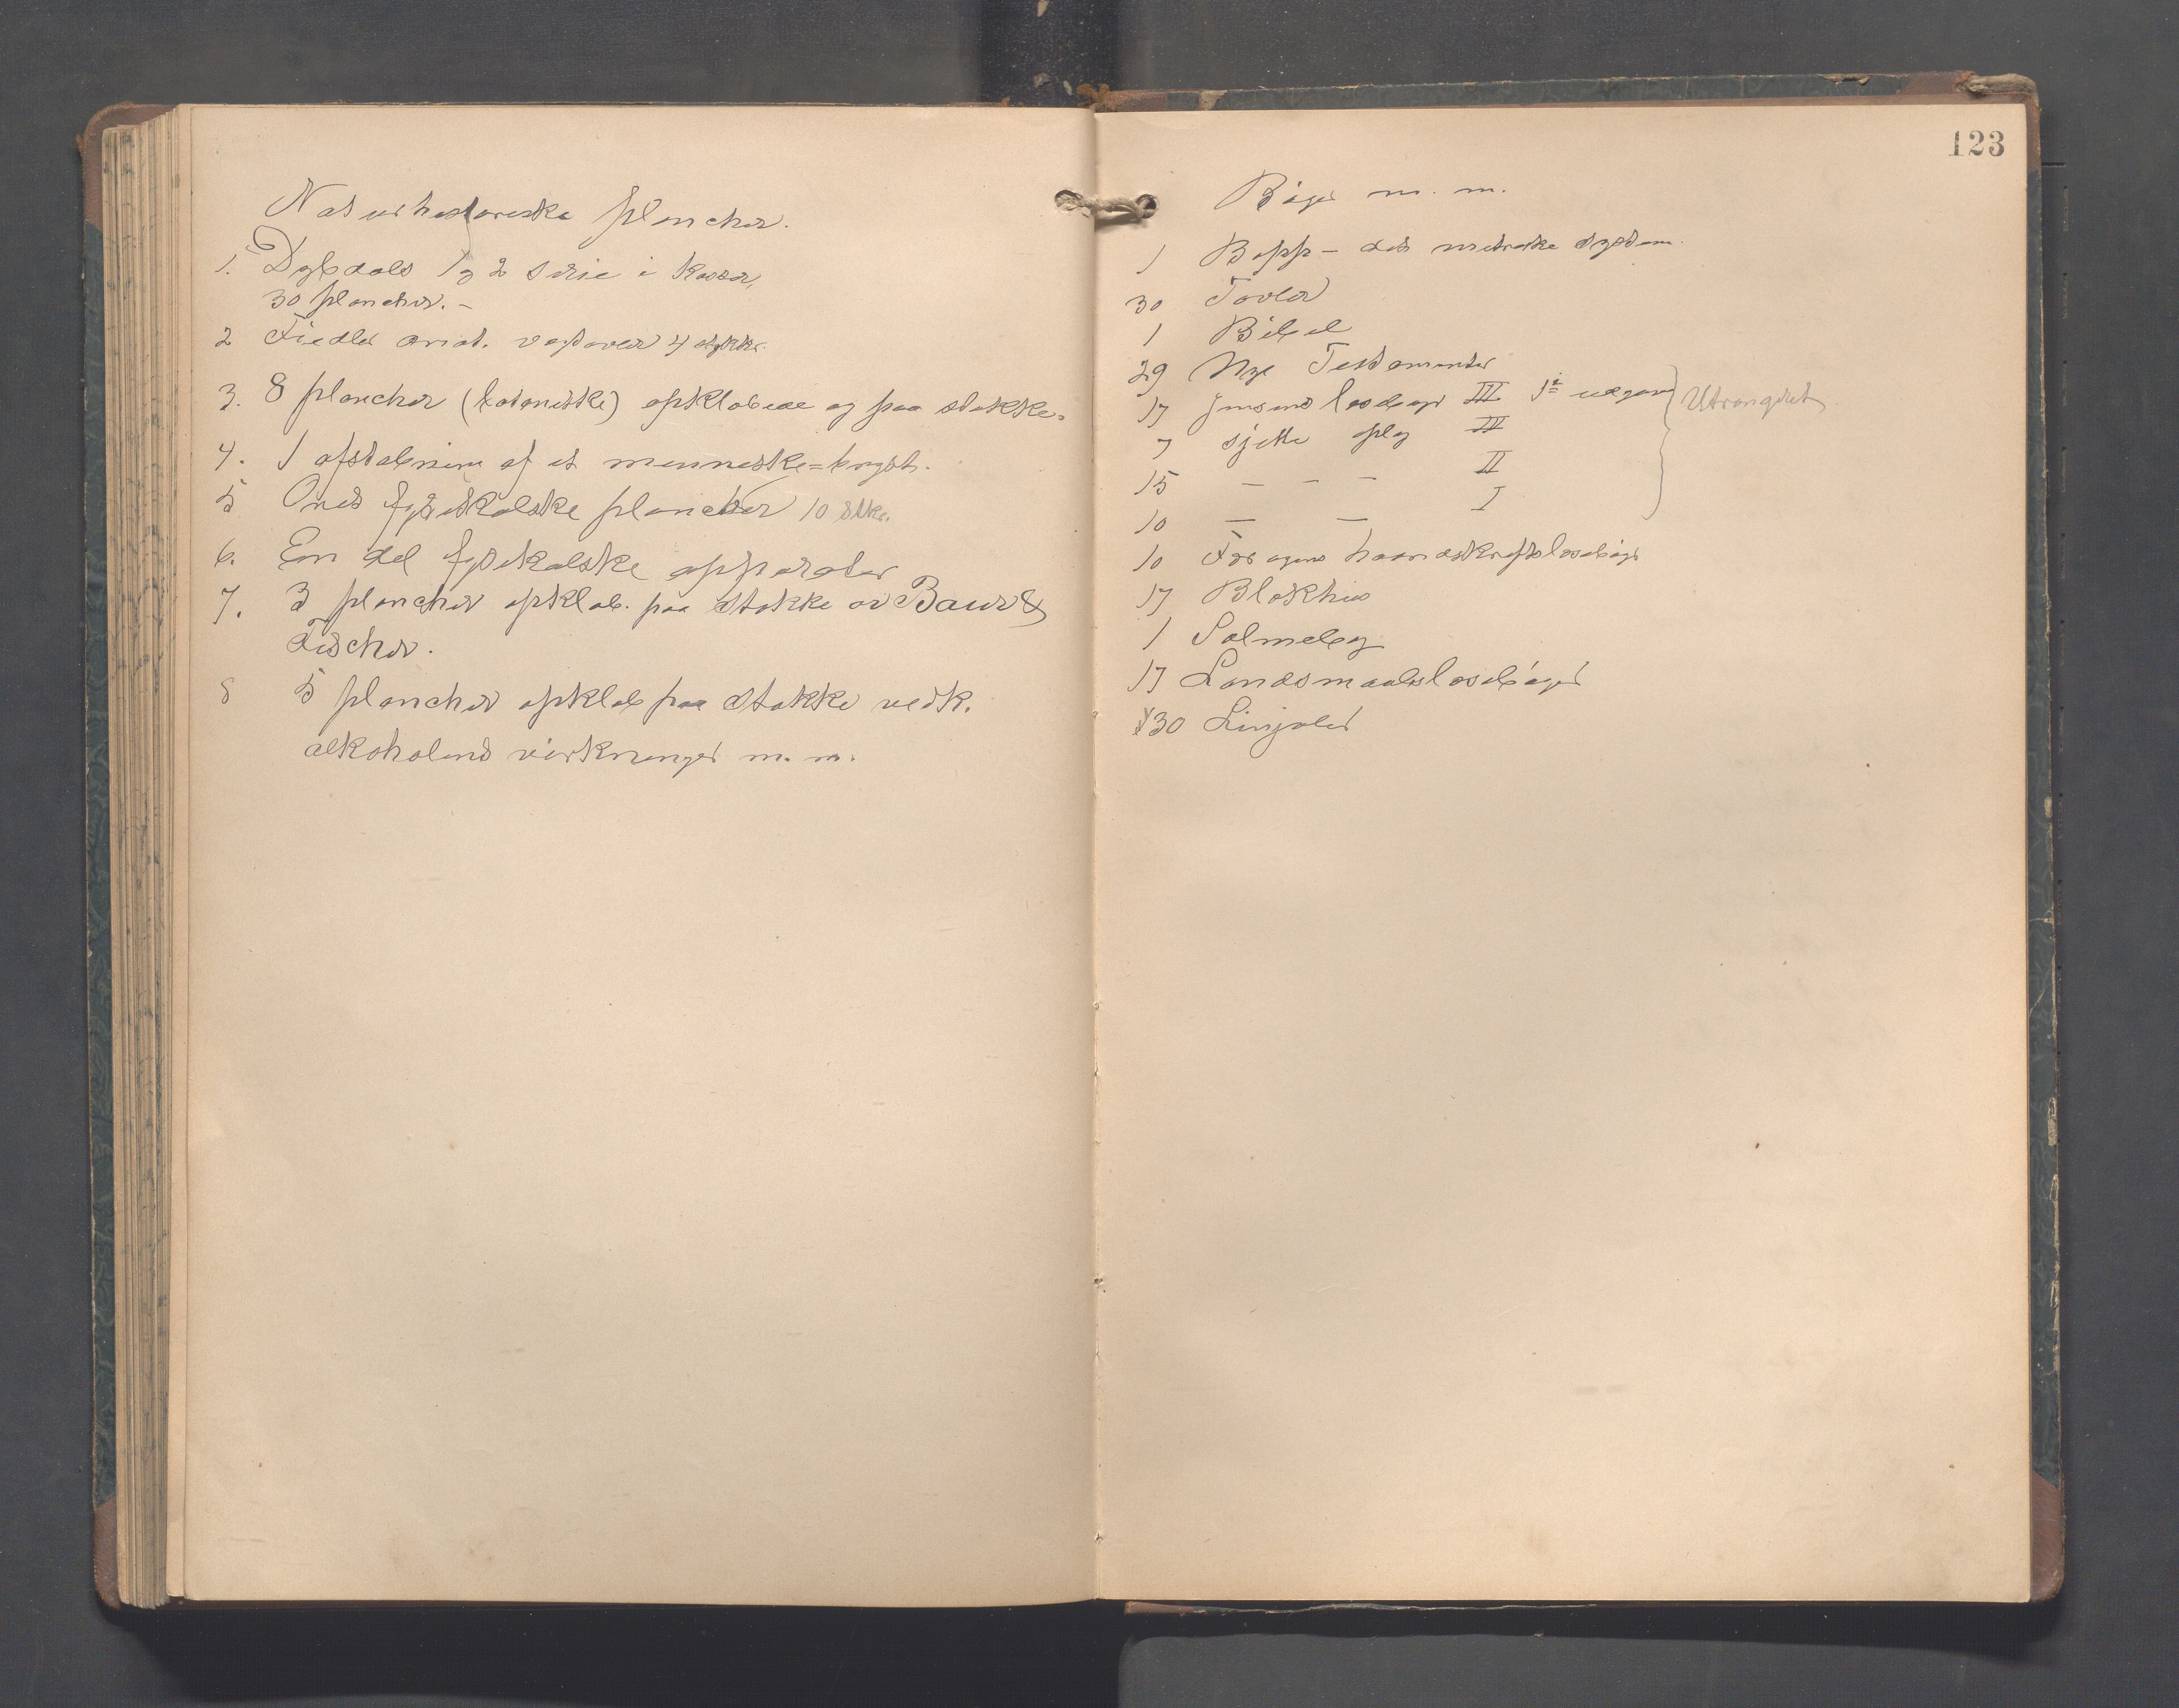 Naturhistoriske plancher.
1. Dybdals 1 og 2 serie i kasser,
30 plancher. –
2 Fiedler anat. vægtavler 4 stykker.
3. 8 plancher (botaniske) opklæbede og paa stokke.
4. 1 afstøbning af et menneske=bryst.
5 fysikalske plancher 10 stkr.
6. En del fysikalske apparater
7. 3 plancher opklæb. paa stokke av Baur &
Fischer.
8 5 plancher opklæb paa stokke vedk.
alkoholens virkninger m. m.
123
Bøger m. m.
1 Bopp – det metriske system.
30 Tavler
1 Bibel
29 Nye Testamenter
17 Jensens læsebøger III 1ste udgave
7 sjette oplag III
15 – – – II
10 – – I
Utrangeret
10 haandskriftslæsebøger
17 Blokhus
1 Salmebog
17 Landsmaalslæsebøger
30 Linjaler